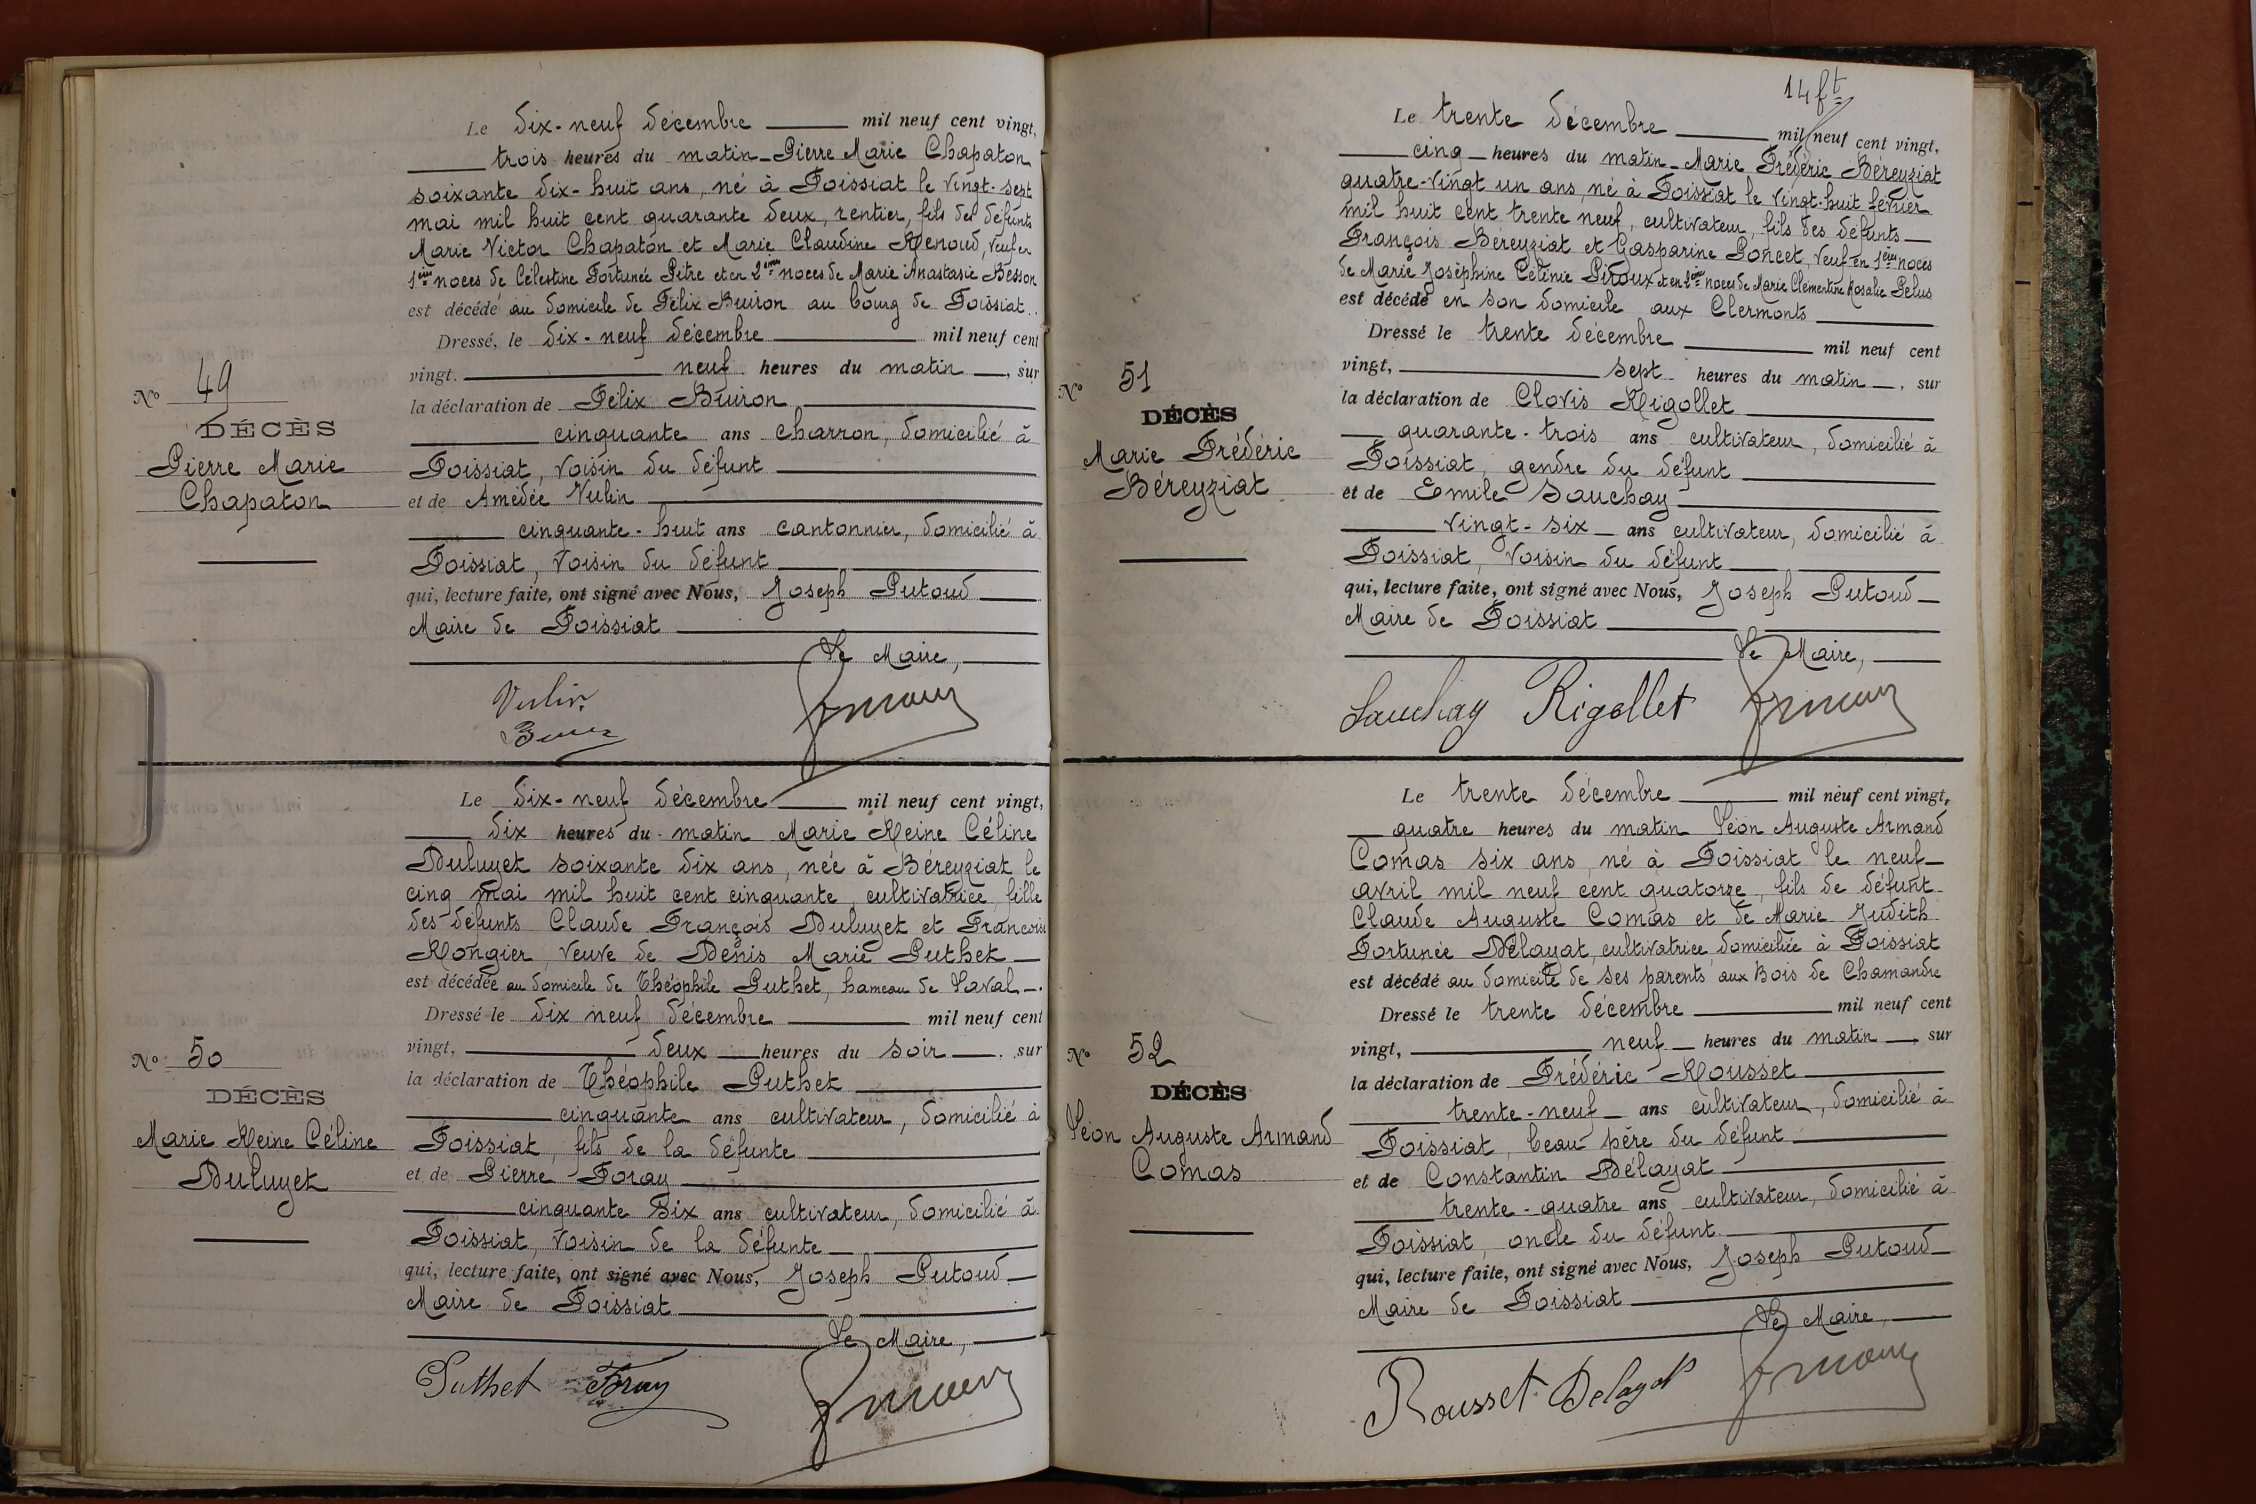 Le dix-neuf décembre mil neuf cent vingt,
trois heures du matin Pierre Marie Chapaton
soixante dix-huit ans, né à Foissiat le vingt-sept
mai mil huit cent quarante deux, rentier, fils des défunts
Marie Victor Chapaton et Marie Claudine Renoud, veuf en
1ères noces de Célestine Fortunée Pitre et en 2èmes noces de Marie Anastasie Besson
est décédé au domicile de Félix Buiron au bourg de Foissiat.
Dressé, le dix-neuf décembre mil neuf cent
vingt. neuf heures du matin, sur
la déclaration de Félix Buiron
cinquante ans charron, domicilié à
Foissiat, voisin du défunt
et de Amédée Vulin
cinquante-huit ans cantonnier, domicilié à
Foissiat, voisin du défunt
qui, lecture faite, ont signé avec Nous, Joseph Putoud
Maire de Foissiat
Le Maire,
Vulin
No 49
DÉCÈS
Pierre Marie
Chapaton
Le dix-neuf décembre mil neuf cent vingt,
dix heures du matin Marie Reine Céline
Duluyet soixante dix ans, née à Béreyziat le
cinq mai mil huit cent cinquante, cultivatrice, fille
des défunts Claude François Duluyet et Francoise
Rongier, veuve de Denis Marie Puthet
est décédée au domicile de Théophile Puthet, hameau de Laval.
Dressé le dix neuf décembre mil neuf cent
vingt, deux heures du soir. sur
la déclaration de Théophile Puthet
cinquante ans cultivateur, domicilié à
Foissiat, fils de la défunte
et de Pierre Foray
cinquante six ans cultivateur, domicilié à
Foissiat, voisin de la défunte
qui, lecture faite, ont signé avec Nous, Joseph Putoud
Maire de Foissiat
Le Maire,
Puthet
No 50
DÉCÈS
Marie Reine Céline
Duluyet
14 ft
Le trente décembre mil neuf cent vingt,
cinq heures du matin Marie Frédéric Béreyziat
quatre-vingt un ans, né à Foissiat le vingt-huit février
mil huit cent trente neuf, cultivateur, fils des défunts
François Béreyziat et Gasparine Poncet, veuf en 1ères noces
de Marie Joséphine Célinie Piroux et en 2èmes noces de Marie Clémentine Rosalie Pelus
est décédé en son domicile aux Clermonts
Dressé le trente décembre mil neuf cent
vingt, sept heures du matin, sur
la déclaration de Clovis Rigollet
quarante-trois ans cultivateur, domicilié à
Foissiat, gendre du défunt
et de Emile Sauchay
vingt-six ans cultivateur, domicilié à
Foissiat, voisin du défunt
qui, lecture faite, ont signé avec Nous, Joseph Putoud
Maire de Foissiat
Le Maire,
Sauchay Rigollet
No 51
DÉCÈS
Marie Frédéric
Béreyziat
Le trente décembre mil neuf cent vingt,
quatre heures du matin Léon Auguste Armand
Comas six ans, né à Foissiat le neuf
avril mil neuf cent quatorze, fils de défunt
Claude Auguste Comas et de Marie Judith
Fortunée Délayat, cultivatrice domiciliée à Foissiat
est décédé au domicile de ses parents aux Bois de Chamandre
Dressé le trente décembre mil neuf cent
vingt, neuf heures du matin, sur
la déclaration de Frédéric Rousset
trente-neuf ans cultivateur, domicilié à
Foissiat, beau père du défunt
et de Constantin Délayat
trente-quatre ans cultivateur, domicilié à
Foissiat, oncle du défunt
qui, lecture faite, ont signé avec Nous, Joseph Putoud
Maire de Foissiat
Le Maire,
Rousset Delayat
No 52
DÉCÈS
Léon Auguste Armand
Comas